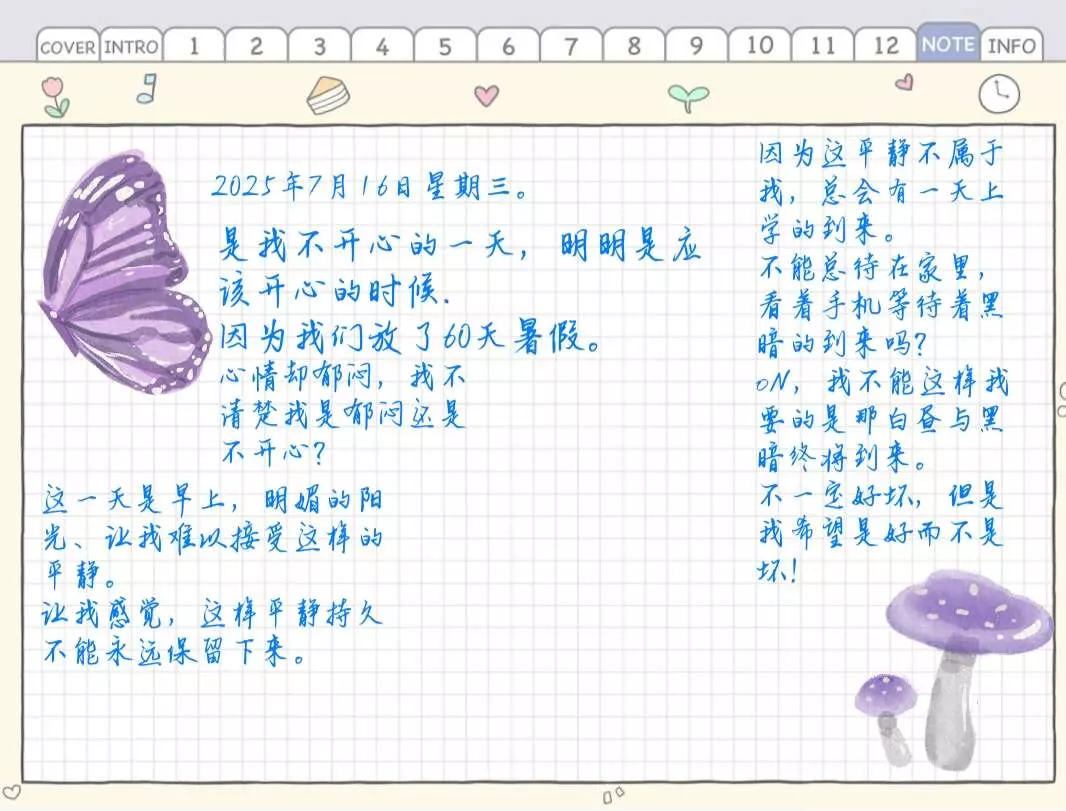 COVER INTRO 1 2 3 4 5 6 7 8 9 10 11 12 NOTE INFO
2025年7月16日星期三。
是我不开心的一天，明明是应
该开心的时候.
因为我们放了60天暑假。
心情却郁闷，我不
清楚我是郁闷还是
不开心？
这一天是早上，明媚的阳
光、让我难以接受这样的
平静。
让我感觉，这样平静持久
不能永远保留下来。
因为这平静不属于
我，总会有一天上
学的到来。
不能总待在家里，
看着手机等待着黑
暗的到来吗？
oN，我不能这样我
要的是那白昼与黑
暗终将到来。
不一定好坏，但是
我希望是好而不是
坏！